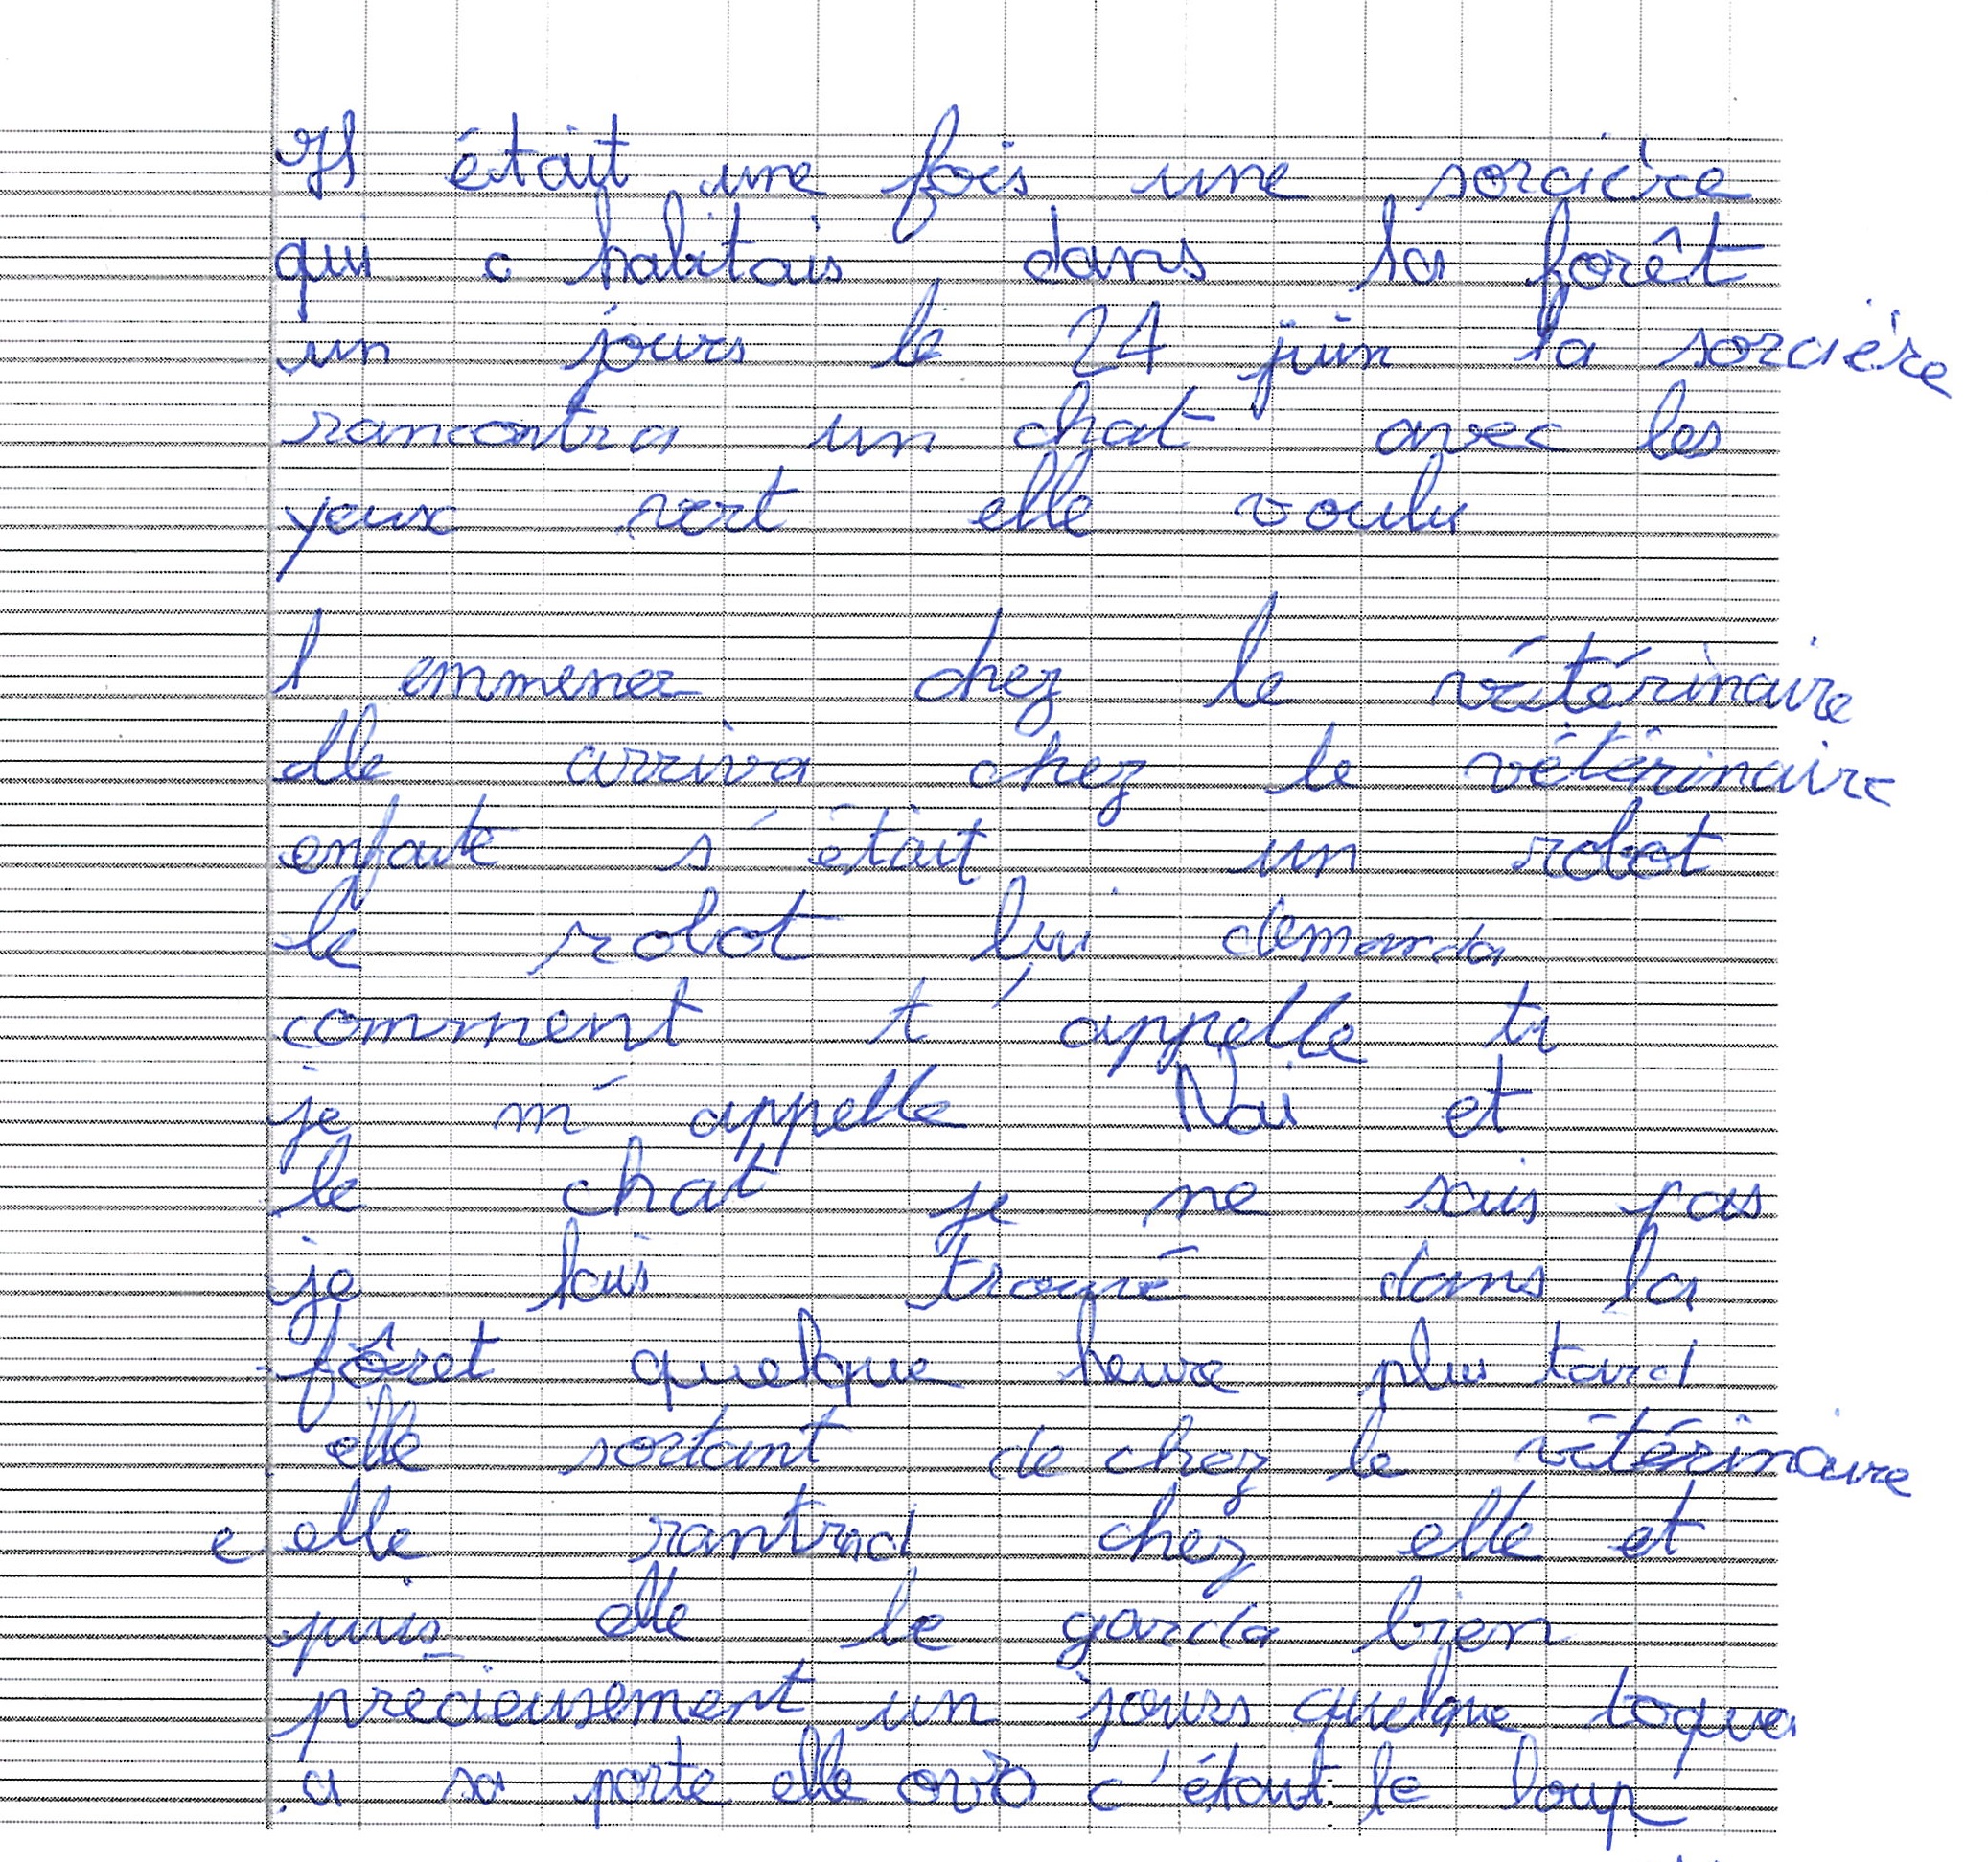 Il était une fois une sorcière
qui c habitais dans la forêt
un jours le 24 juin la sorcière
rancontra un chat avec les
yeux vert elle voulu
l emmener chez le vétérinaire
elle arriva chez le vétérinaire
enfaite s'était un robot
le robot lui demanda
comment t'appelle tu
je m'appelle Naï et
le chat je ne sais pas
je lais trouvé dans la
fôret quelque heure plus tard
elle sortant de chez le vétérinaire
e elle rantrad chez elle et
puis elle le garda bien
precieusement un jours quelque toqua
a sa porte elle ovro c'était le loup